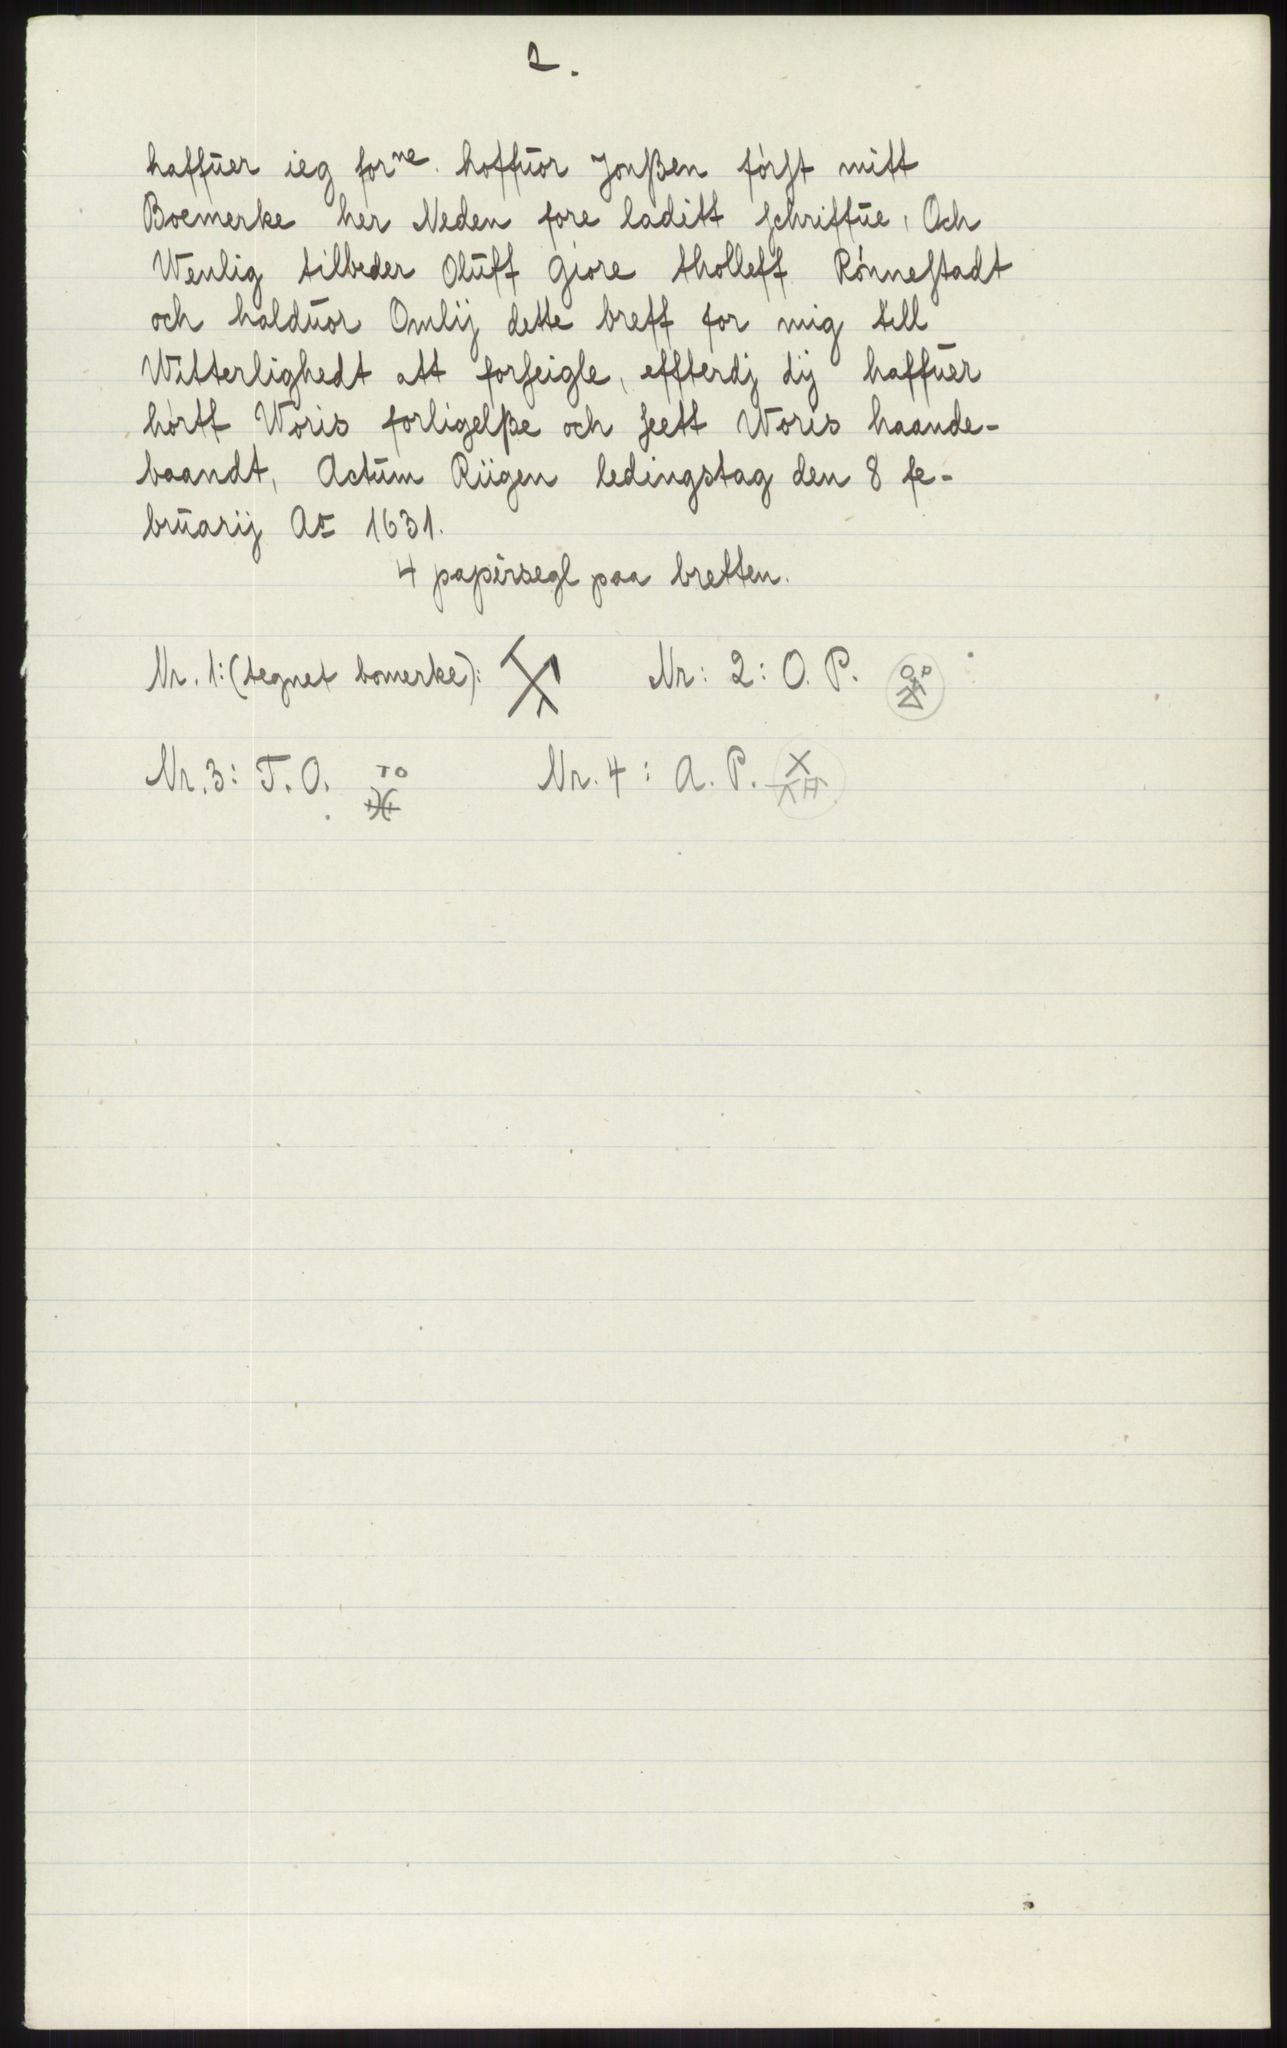 2.
haffuer ieg for^ne. hoffuor Jonßen först mitt
Boemerke her Neden fore laditt schriffue, Och
Wenlig tilbeder Oluff Giore tholleff Rönnestadt
och halduor Omlij dette breff for mig till
Witterlighedt att forseigle, effterdj dij haffuer
hörtt Woris forligelße och seett Woris haande-
baandt, Actum Riigen ledingstag den 8 fe-
bruarij Ao 1631.
4 papirsegl paa bretten.
Nr. 1: (tegnet bomerke): Nr: 2: O. P. O P
Nr. 3: T. O. TO Nr. 4: A. P.